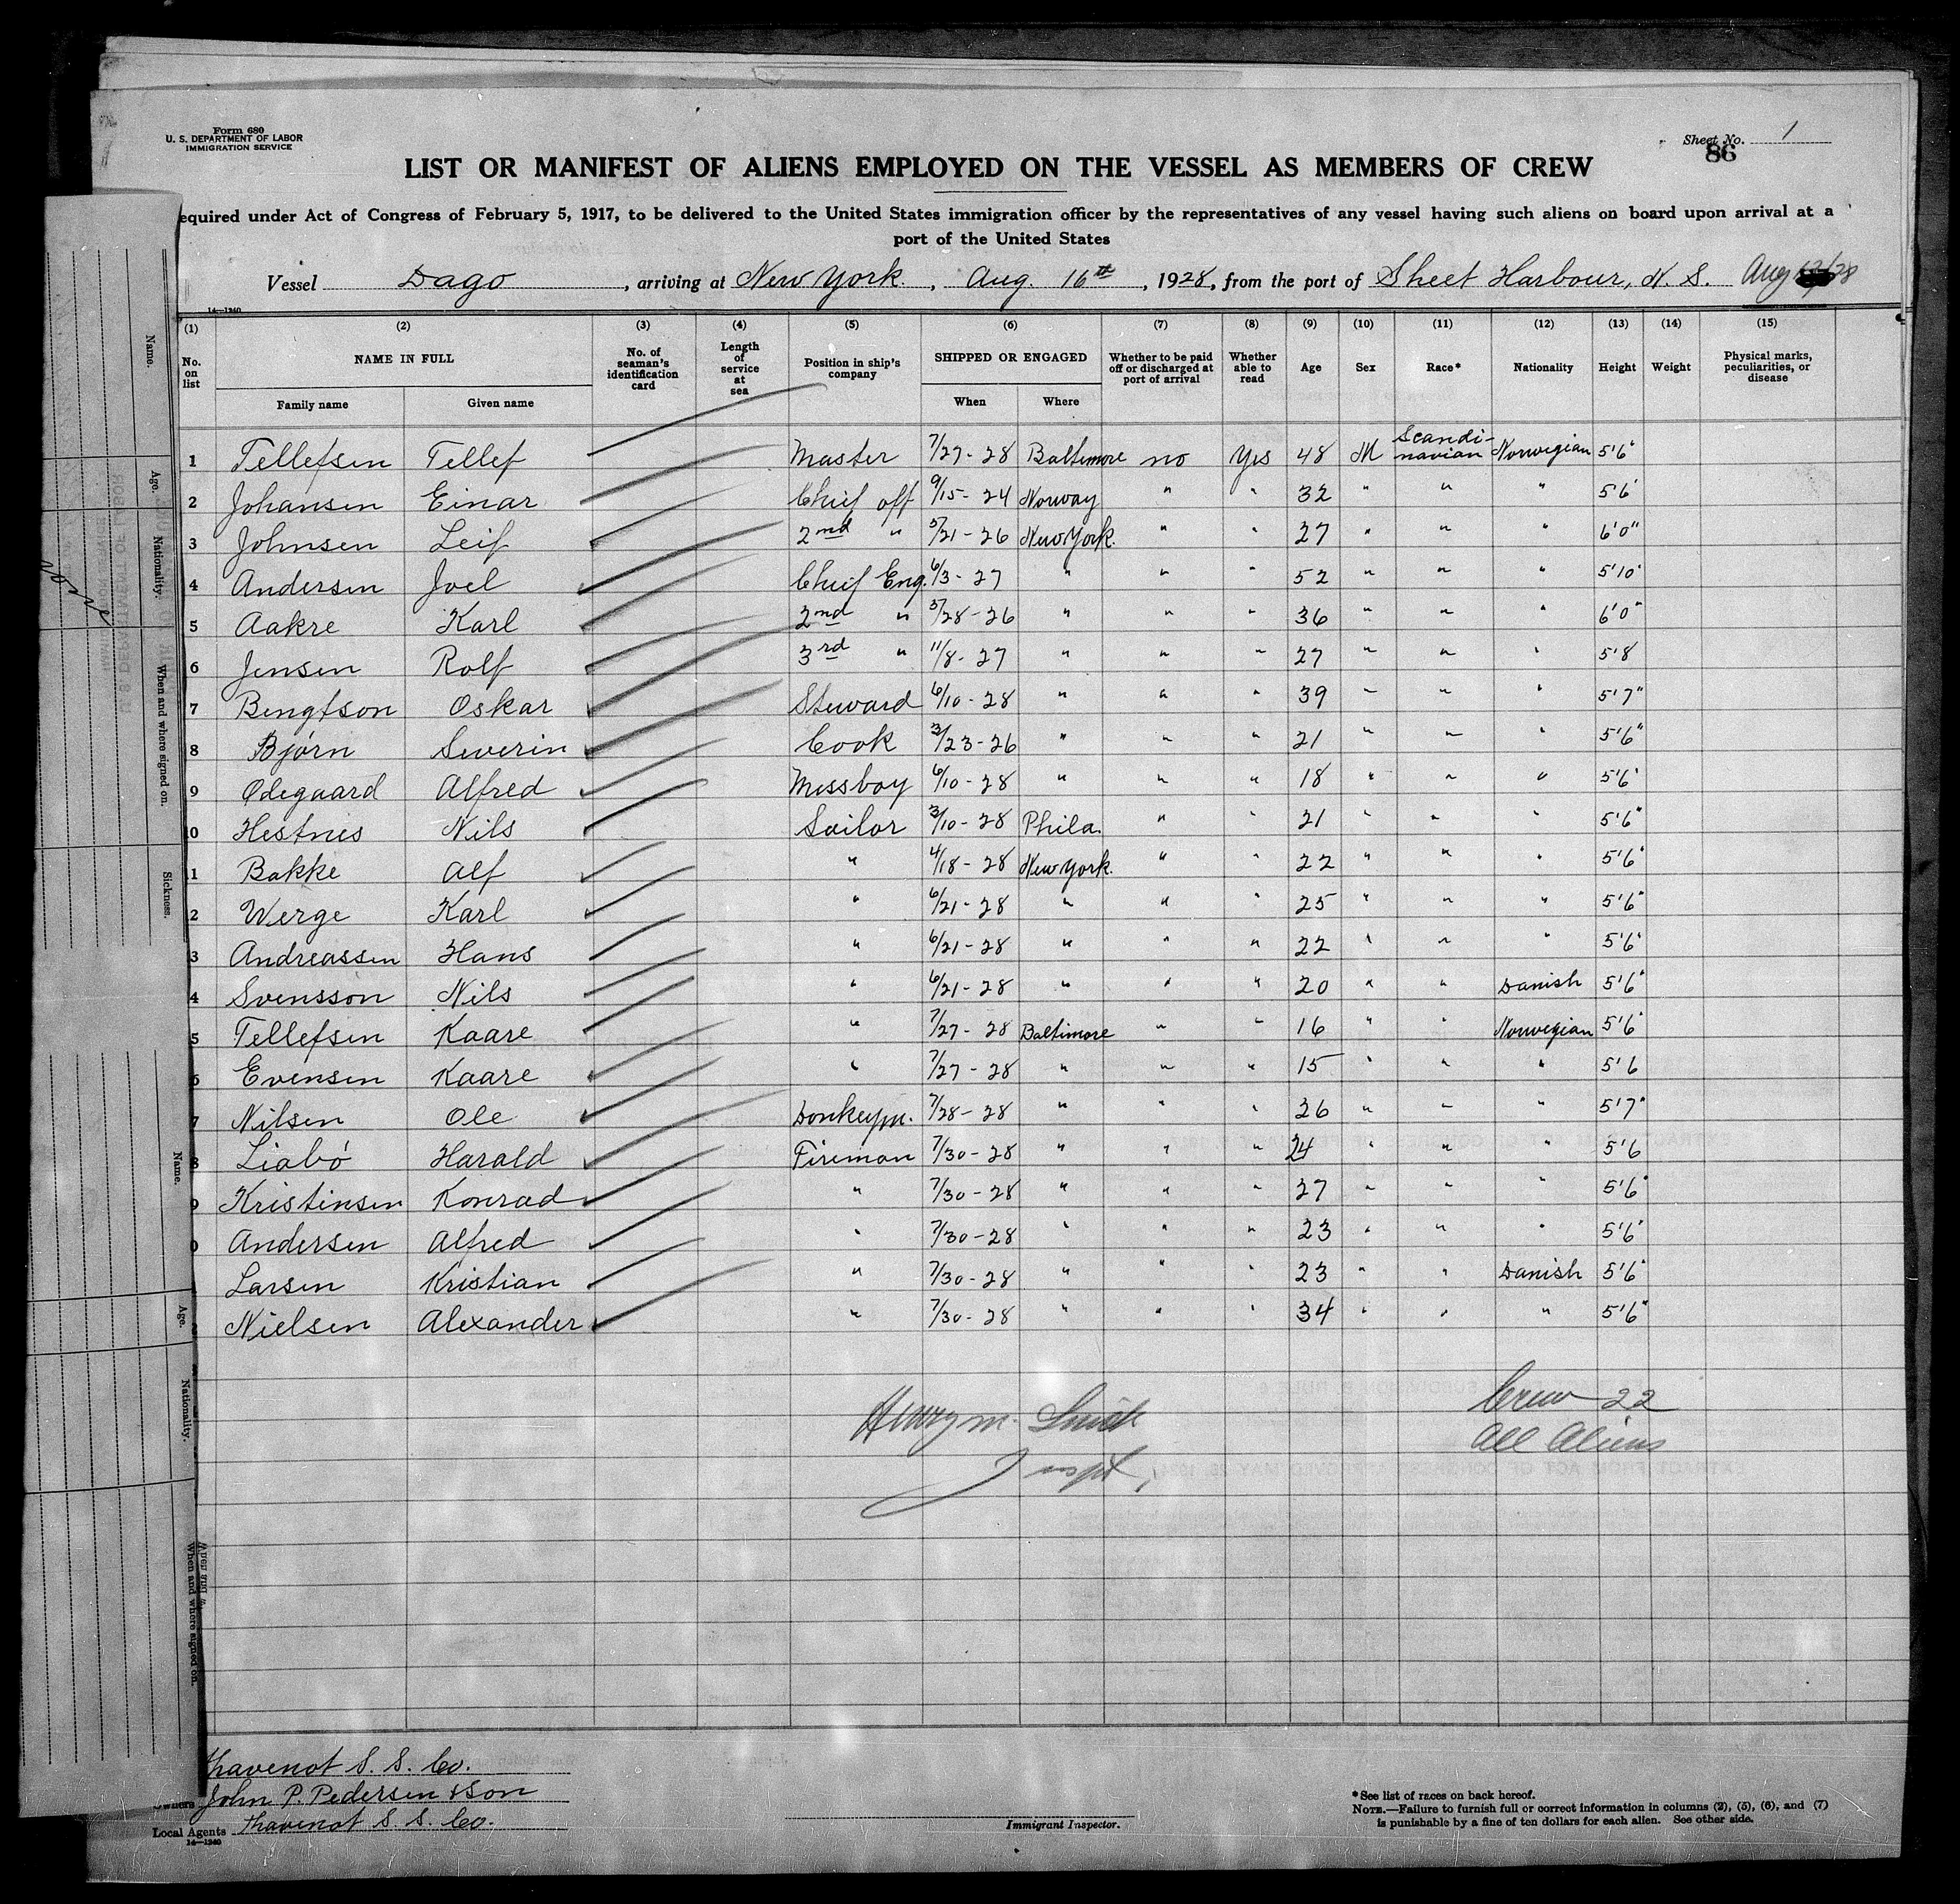 Form 680
U. S. DEPARTMENT OF LABOR
IMMIGRATION SERVICE
Sheet No. 1
86
LIST OR MANIFEST OF ALIENS EMPLOYED ON THE VESSEL AS MEMBERS OF CREW
equired under Act of Congress of February 5, 1917, to be delivered to the United States immigration officer by the representatives of any vessel having such aliens on board upon arrival at a
port of the United States
Vessel Dago, arriving at New York, Aug. 16th, 1928, from the port of Sheet Harbour, N. S. Aug /28
14—1240
(1) (2) (3) (4) (5) (6) (7) (8) (9) (10) (11) (12) (13) (14) (15)
No. on list NAME IN FULL No. of seaman's identification card Length of service at sea Position in ship's company SHIPPED OR ENGAGED Whether to be paid off or discharged at port of arrival Whether able to read Age Sex Race* Nationality Height Weight Physical marks, peculiarities, or disease
Family name Given name When Where
1 Tellefsen Tellef Master 7/27-28 Baltimore no Yes 48 M Scandi-navian Norwegian 5'6"
2 Johansen Einar Chief off 9/15-24 Norway " " 32 " " " 5'6'
3 Johnsen Leif 2nd " 5/21-26 New York. " " 27 " " " 6'0"
4 Andersen Joel Chief Eng. 6/3-27 " " " 52 " " " 5'10"
5 Aakre Karl 2nd " 5/28-26 " " " 36 " " " 6'0"
6 Jensen Rolf 3rd " 11/8-27 " " " 27 " " " 5'8
7 Bengtson Oskar Steward 6/10-28 " " " 39 " " " 5'7"
8 Bjørn Severin Cook 3/23-26 " " " 21 " " " 5'6"
9 Ødegaard Alfred Messboy 6/10-28 " " " 18 " " " 5'6"
0 Hestnes Nils Sailor 3/10-28 Phila. " " 21 " " " 5'6"
1 Bakke Alf " 4/18-28 New York. " " 22 " " " 5'6"
2 Werge Karl " 6/21-28 " " " 25 " " " 5'6"
3 Andreassen Hans " 6/21-28 " " " 22 " " " 5'6"
4 Svensson Nils " 6/21-28 " " " 20 " " Danish 5'6"
5 Tellefsen Kaare " 7/27-28 Baltimore " " 16 " " Norwegian 5'6"
6 Evensen Kaare " 7/27-28 " " " 15 " " " 5'6
7 Nilsen Ole Donkeym. 7/28-28 " " " 26 " " " 5'7"
8 Liabó Harald Fireman 7/30-28 " " " 24 " " " 5'6
9 Kristinsen Konrad " 7/30-28 " " " 27 " " " 5'6"
0 Andersen Alfred " 7/30-28 " " " 23 " " " 5'6"
Larsen Kristian " 7/30-28 " " " 23 " " Danish 5'6"
Nielsen Alexander " 7/30-28 " " " 34 " " " 5'6"
Crew 22
All Aliens
Henry M. Smith
Inspt.
Thavenot S. S. Co.
Owners John P. Pedersen & Son
Local Agents Thavenot S. S. Co.
14—1240
Immigrant Inspector.
*See list of races on back hereof.
NOTE.—Failure to furnish full or correct information in columns (2), (5), (6), and (7)
is punishable by a fine of ten dollars for each alien. See other side.
Name.
Age.
Nationality.
When and where signed on.
Sickness.
Name.
Age.
Nationality.
When and where signed on.